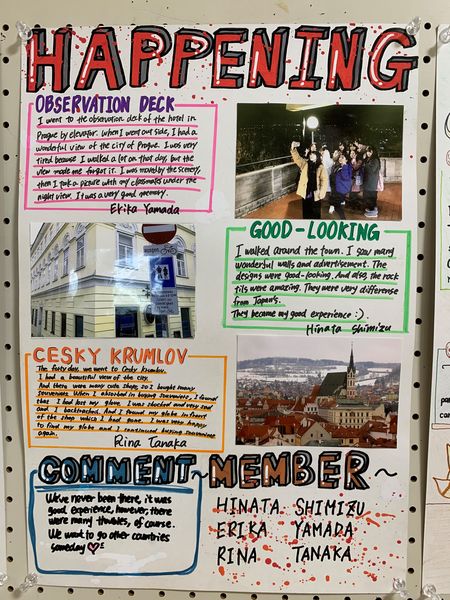 HAPPENING
OBSERVATION DECK
I went to the observation deck of the hotel in
Prague by elevator. When I went out side, I had a
wonderful view of the city of Prague. I was very
tired because I walked a lot on that day, but the
view made me forget it. I was moved by the scenery,
then I took a picture with my classmates under the
night view. It was a very good memory.
Erika Yamada
GOOD-LOOKING
I walked around the town. I saw many
wonderful walls and advertisement. The
designs were good-looking. And also, the rock
tils were amazing. They were very difference
from Japan's.
They became my good experience :).
Hinata Shimizu
CESKY KRUMLOV
The day, we went to Cesky Krumlov.
I had a beautiful view of the city.
And there were many cute shops, so I bought many
souvenirs. When I absorbed in souvenirs, I found
that I had lost my glove. I was shocked and very sad
and I backtracked. And I found my globe in front
of the shop which I had gone. I was very happy
to find my globe and I continued buying souvenirs
again.
Rina Tanaka
COMMENT ~ MEMBER ~
We've never been there, it was
good experience, however, there
were many troubles, of course.
We want to go other countries
someday
HINATA SHIMIZU
ERIKA YAMADA
RINA TANAKA